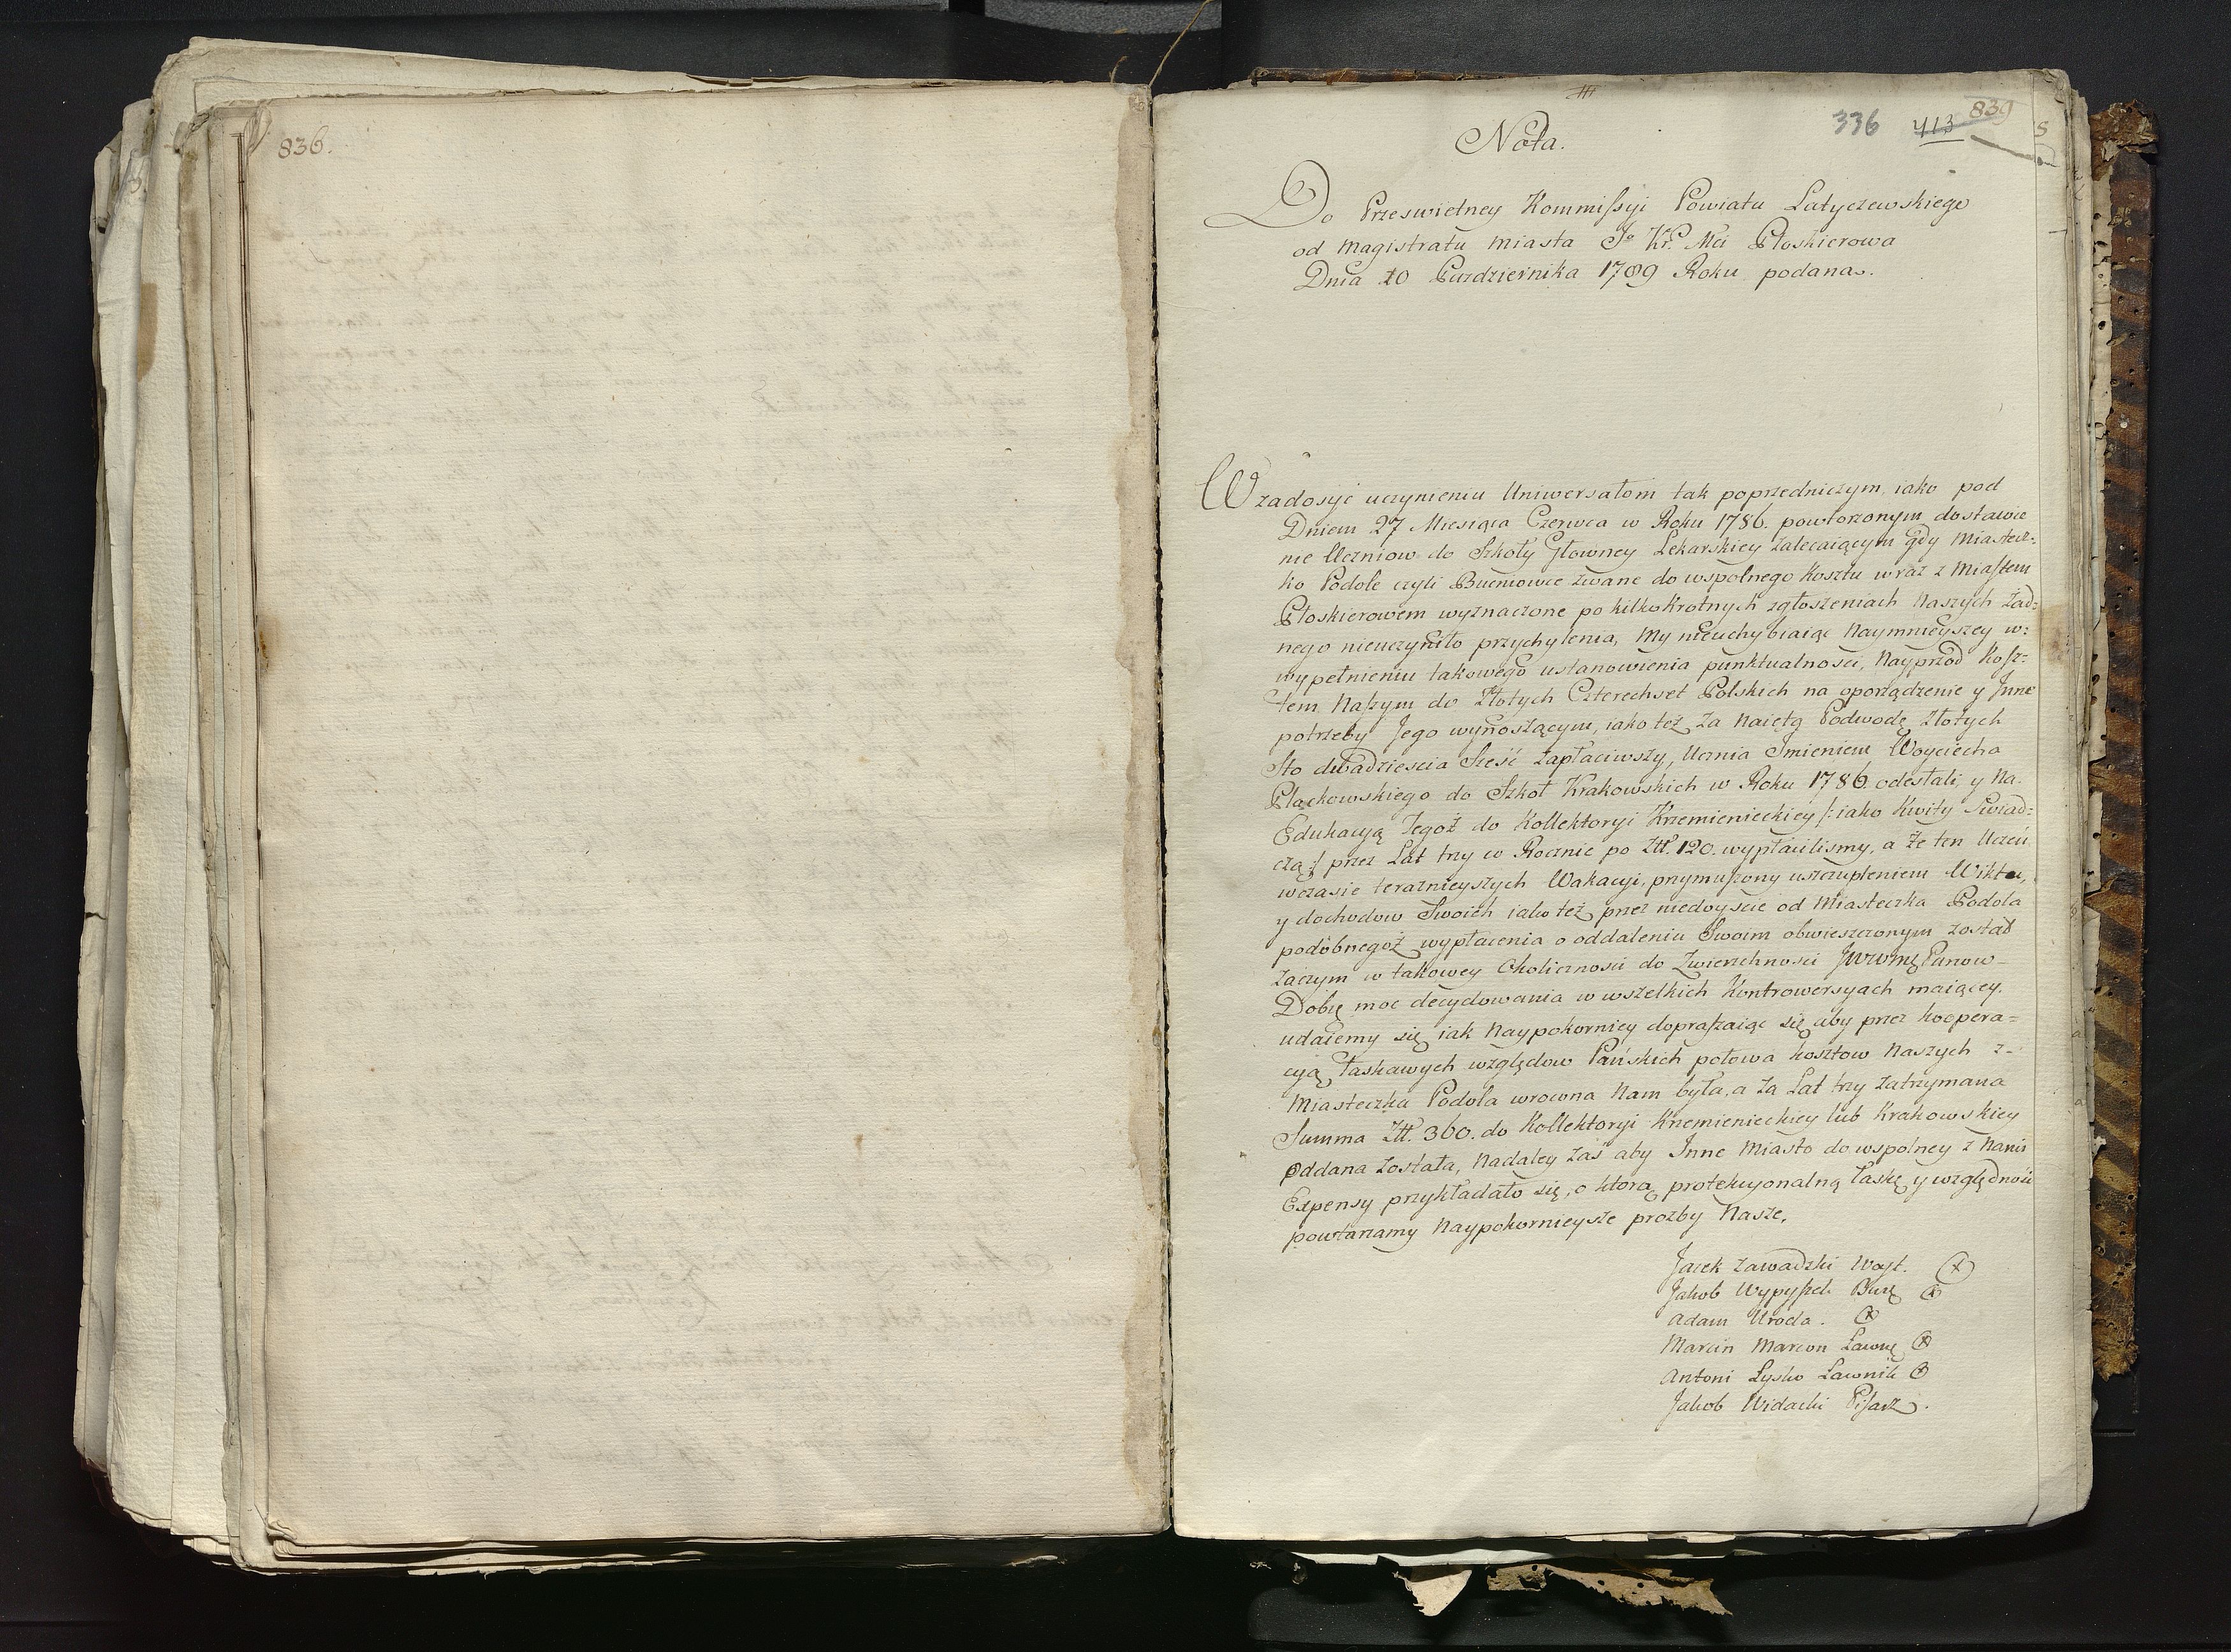 836.
336 413 839
Nota.
Do Przeswietney Kommissyi Powiatu Latyczewskiego
od Magistratu Miasta Jo Kr. Mci Płoskierowa
Dnia 10 Pazdziernika 1789 Roku podana.
W zadosyć uczynieniu Uniwersałom tak poprzedniczym iako pod
Dniem 27 Miesiąca Czerwca w Roku 1786. powtorzonym dostawie
nie Uczniow do Szkoły Głowney Lekarskiey zalecaiącym gdy Miastecz=
ko Podole czyli Bucniowce zwane do wspolnego Kosztu wraz z Miastem
Płoskierowem wyznaczone po kilkoKrotnych zgłoszeniach Naszych żad=
nego nieuczyniło przychylenia, My nieuchybiaiąc Naymnieyszey w=
wypełnieniu takowego ustanowienia punktualnosci, Nayprzod Kosz=
tem Naszym do Złotych Czterechset Polskich na oporządzenie y Jnne
potrzeby Jego wynoszącym, iako też za Naiętą Podwodę Złotych
Sto dwadziescia Sześć zapłaciwszy, Ucznia Jmieniem Woyciecha
Plackowskiego do Szkoł Krakowskich w Roku 1786 odesłali, y Na
Edukacyą Tegoż do Kollektoryi Krzemienieckiey /: iako Kwity Swiad=
czą :/ przez Lat trzy w Rocznie po Złł. 120. wypłacilismy, a że ten Uczeń
wczasie teraznieyszych Wakacyi, przymuszony uszczupleniem Wiktu,
y dochodow Swoich iako też przez niedoyscie od Miasteczka Podola
podobnegoż wypłacenia o oddaleniu Swoim obwieszczonym został
Zaczym w takowey Okolicznosci do Zwierzchnosci Panow
Dobię moc decydowania w wszelkich Kontrowersyach maiącey.
udaiemy się iak Naypokorniey dopraszaiąc się aby przez koopera=
cyą Łaskawych względow Pańskich połowa kosztow Naszych z
Miasteczka Podola wrocona Nam była, a za Lat trzy zatrzymana
Summa Złł. 360. do Kollektoryi Krzemienieckiey lub Krakowskiey
Oddana została, Nadaley zaś aby Inne Miasto do wspolney z Nami
Expensy przykładało się, o ktorą protekcyonalną Łaskę y względność
powtarzamy Naypokornieysze prozby Nasze,
Jacek Zawadzki Woyt. (x)
Jakob Wypyszek Burę (x)
Adam Uroda. (x)
Marcin Marcon Ławnę (x)
Antoni Łysko Ławnik (x)
Jakob Widacki Pisarz.